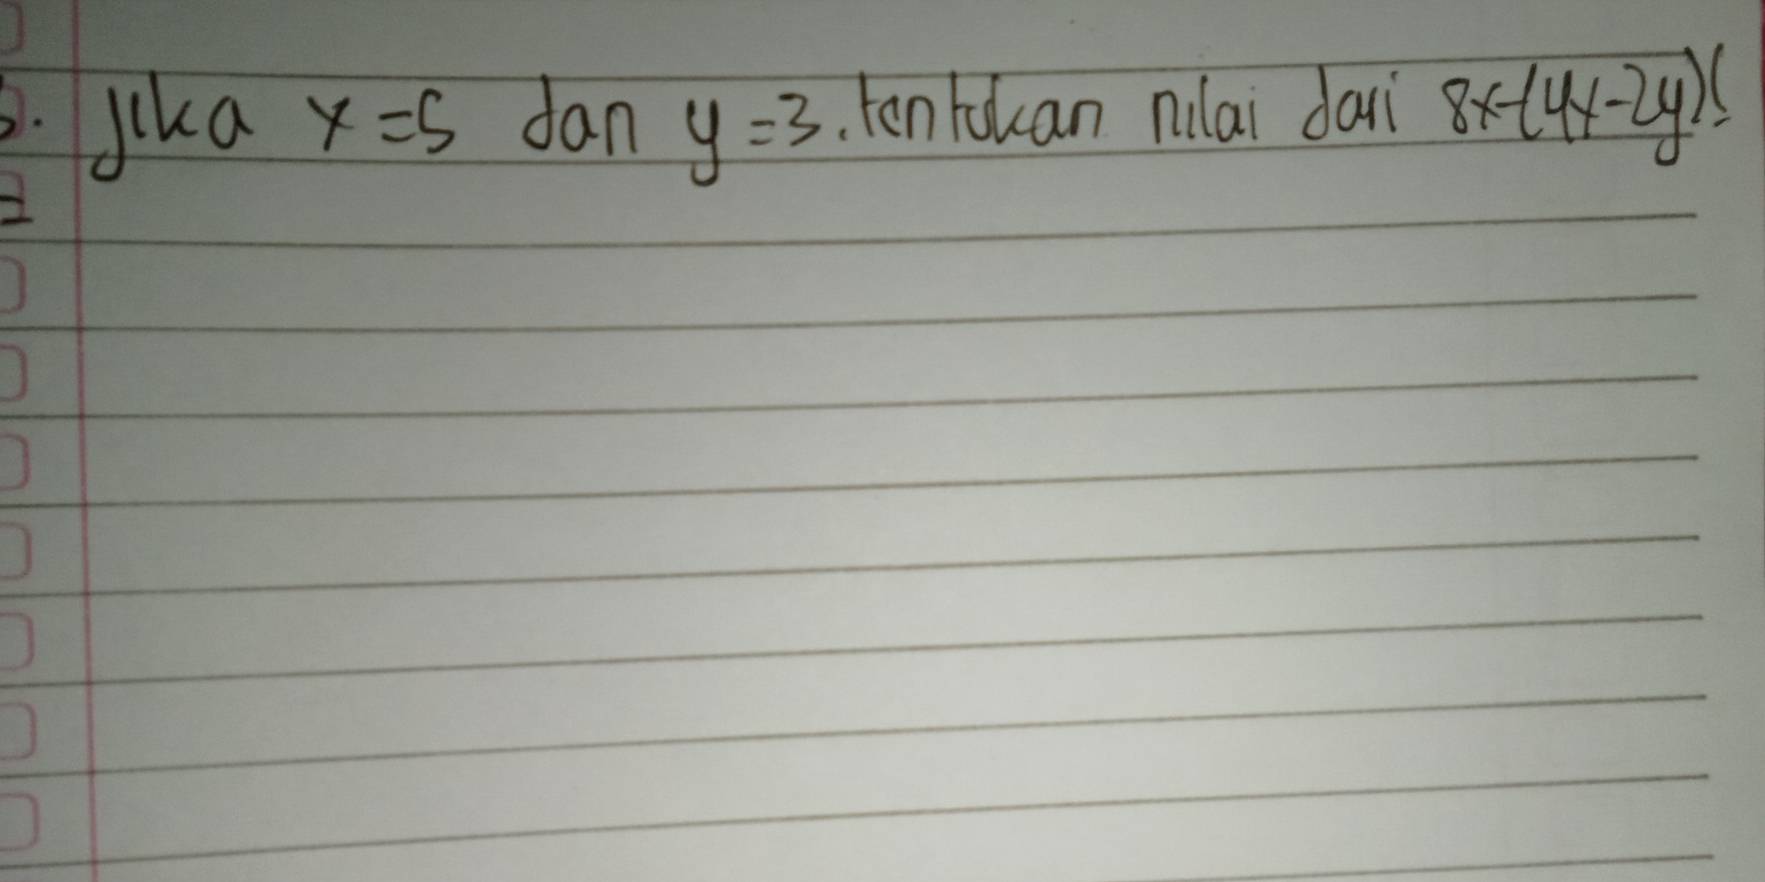 Jika x=5 dan y=3. tentukan nilai dari 8x-(4x-2y)!
=